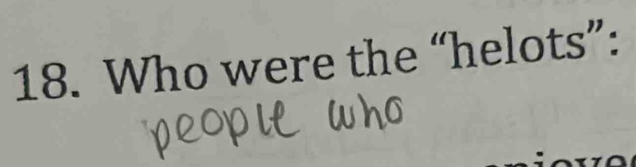 18. Who were the “helots”:
people who